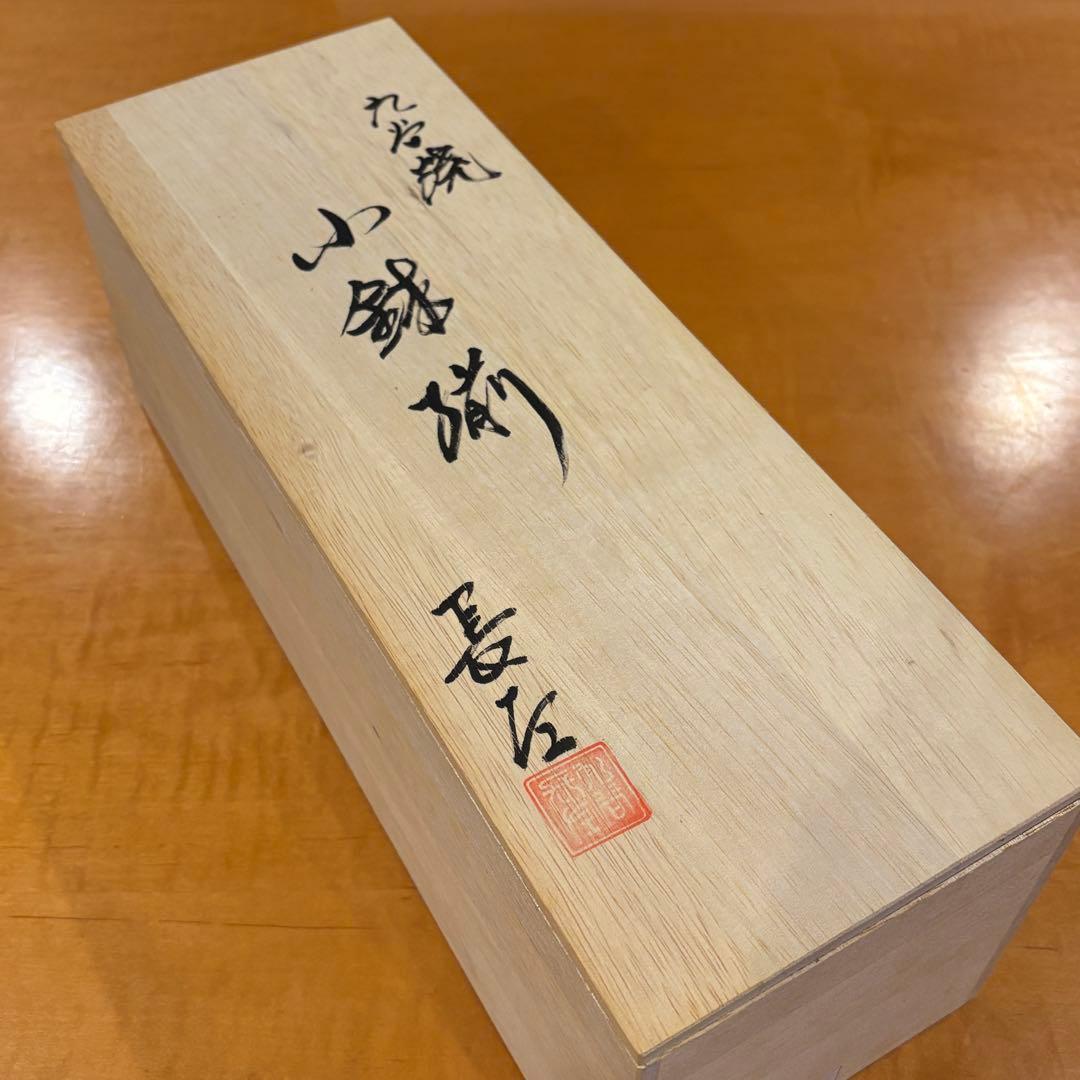 九谷焼
小鉢揃
長左